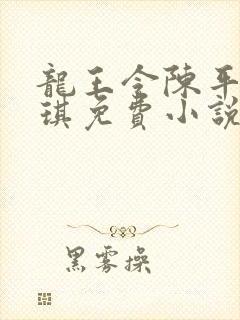 龍王令陳平
琪免費小說
黑雾操